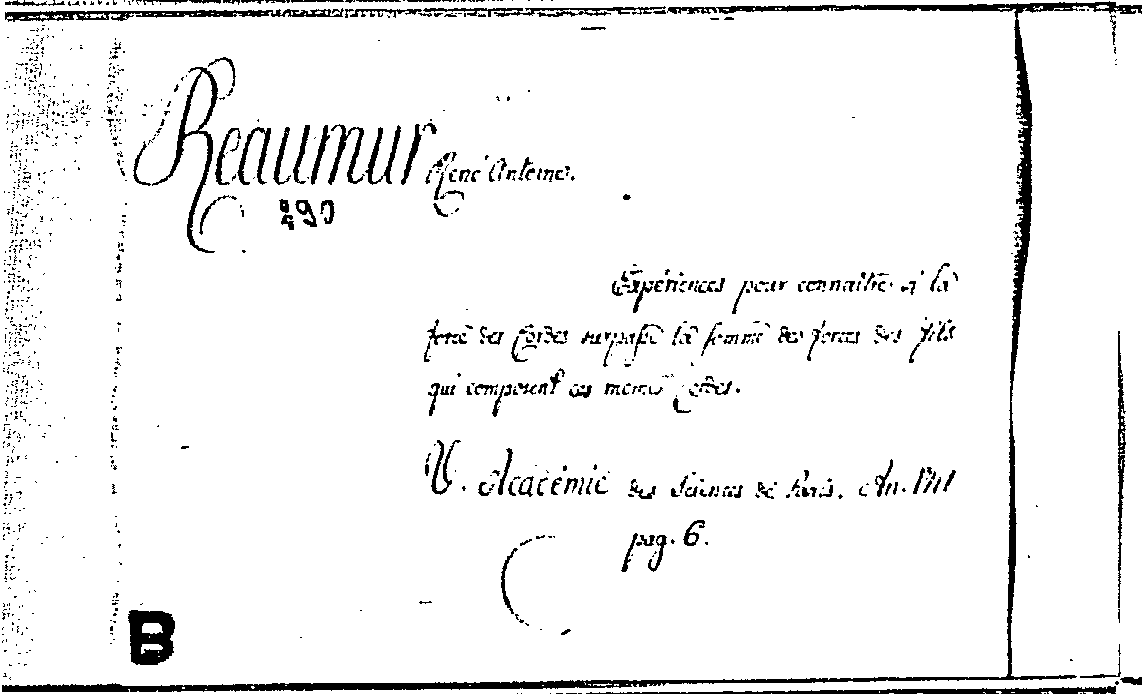 Reaumur René Antoine.
290
Expériences pour connaitre si la
force des Cordes surpasse la somme des forces des fils
qui composent ces memes Cordes.
V. Académie des Sciences de Paris. An. 1711
pag. 6.
B